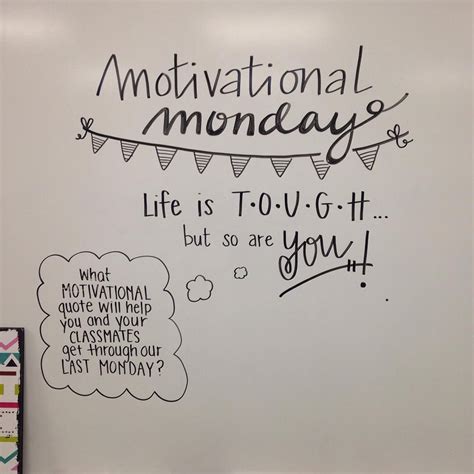 Motivational
monday
Life is T·O·U·G·H...
but so are you!
What
MOTIVATIONAL
quote will help
you and your
CLASSMATES
get through our
LAST MONDAY?